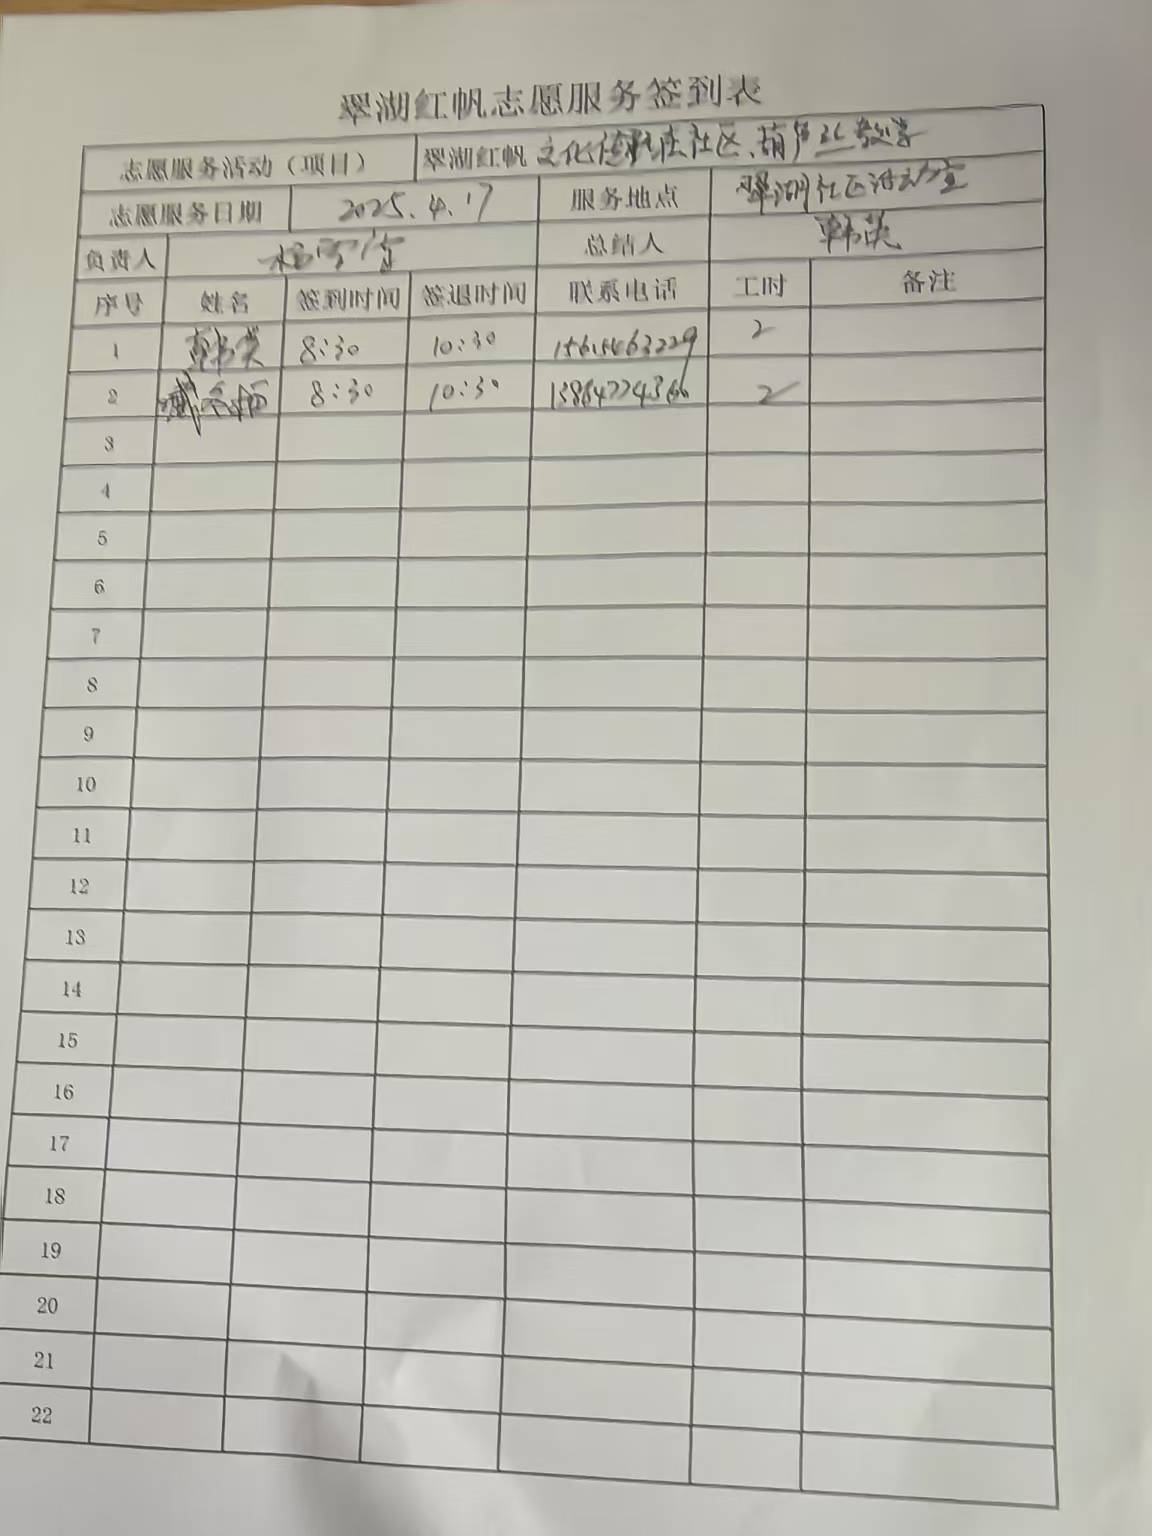 翠湖红帆志愿服务签到表
志愿服务活动（项目） 翠湖红帆 文化传 进社区、葫芦丝教学
志愿服务日期 2025.4.17 服务地点 翠湖社区活动室
负责人 总结人 韩英
序号 姓名 签到时间 签退时间 联系电话 工时 备注
1 韩英 8:30 10:30 15615463229 2
2 8:30 10:30 13864724366 2
3
4
5
6
7
8
9
10
11
12
13
14
15
16
17
18
19
20
21
22